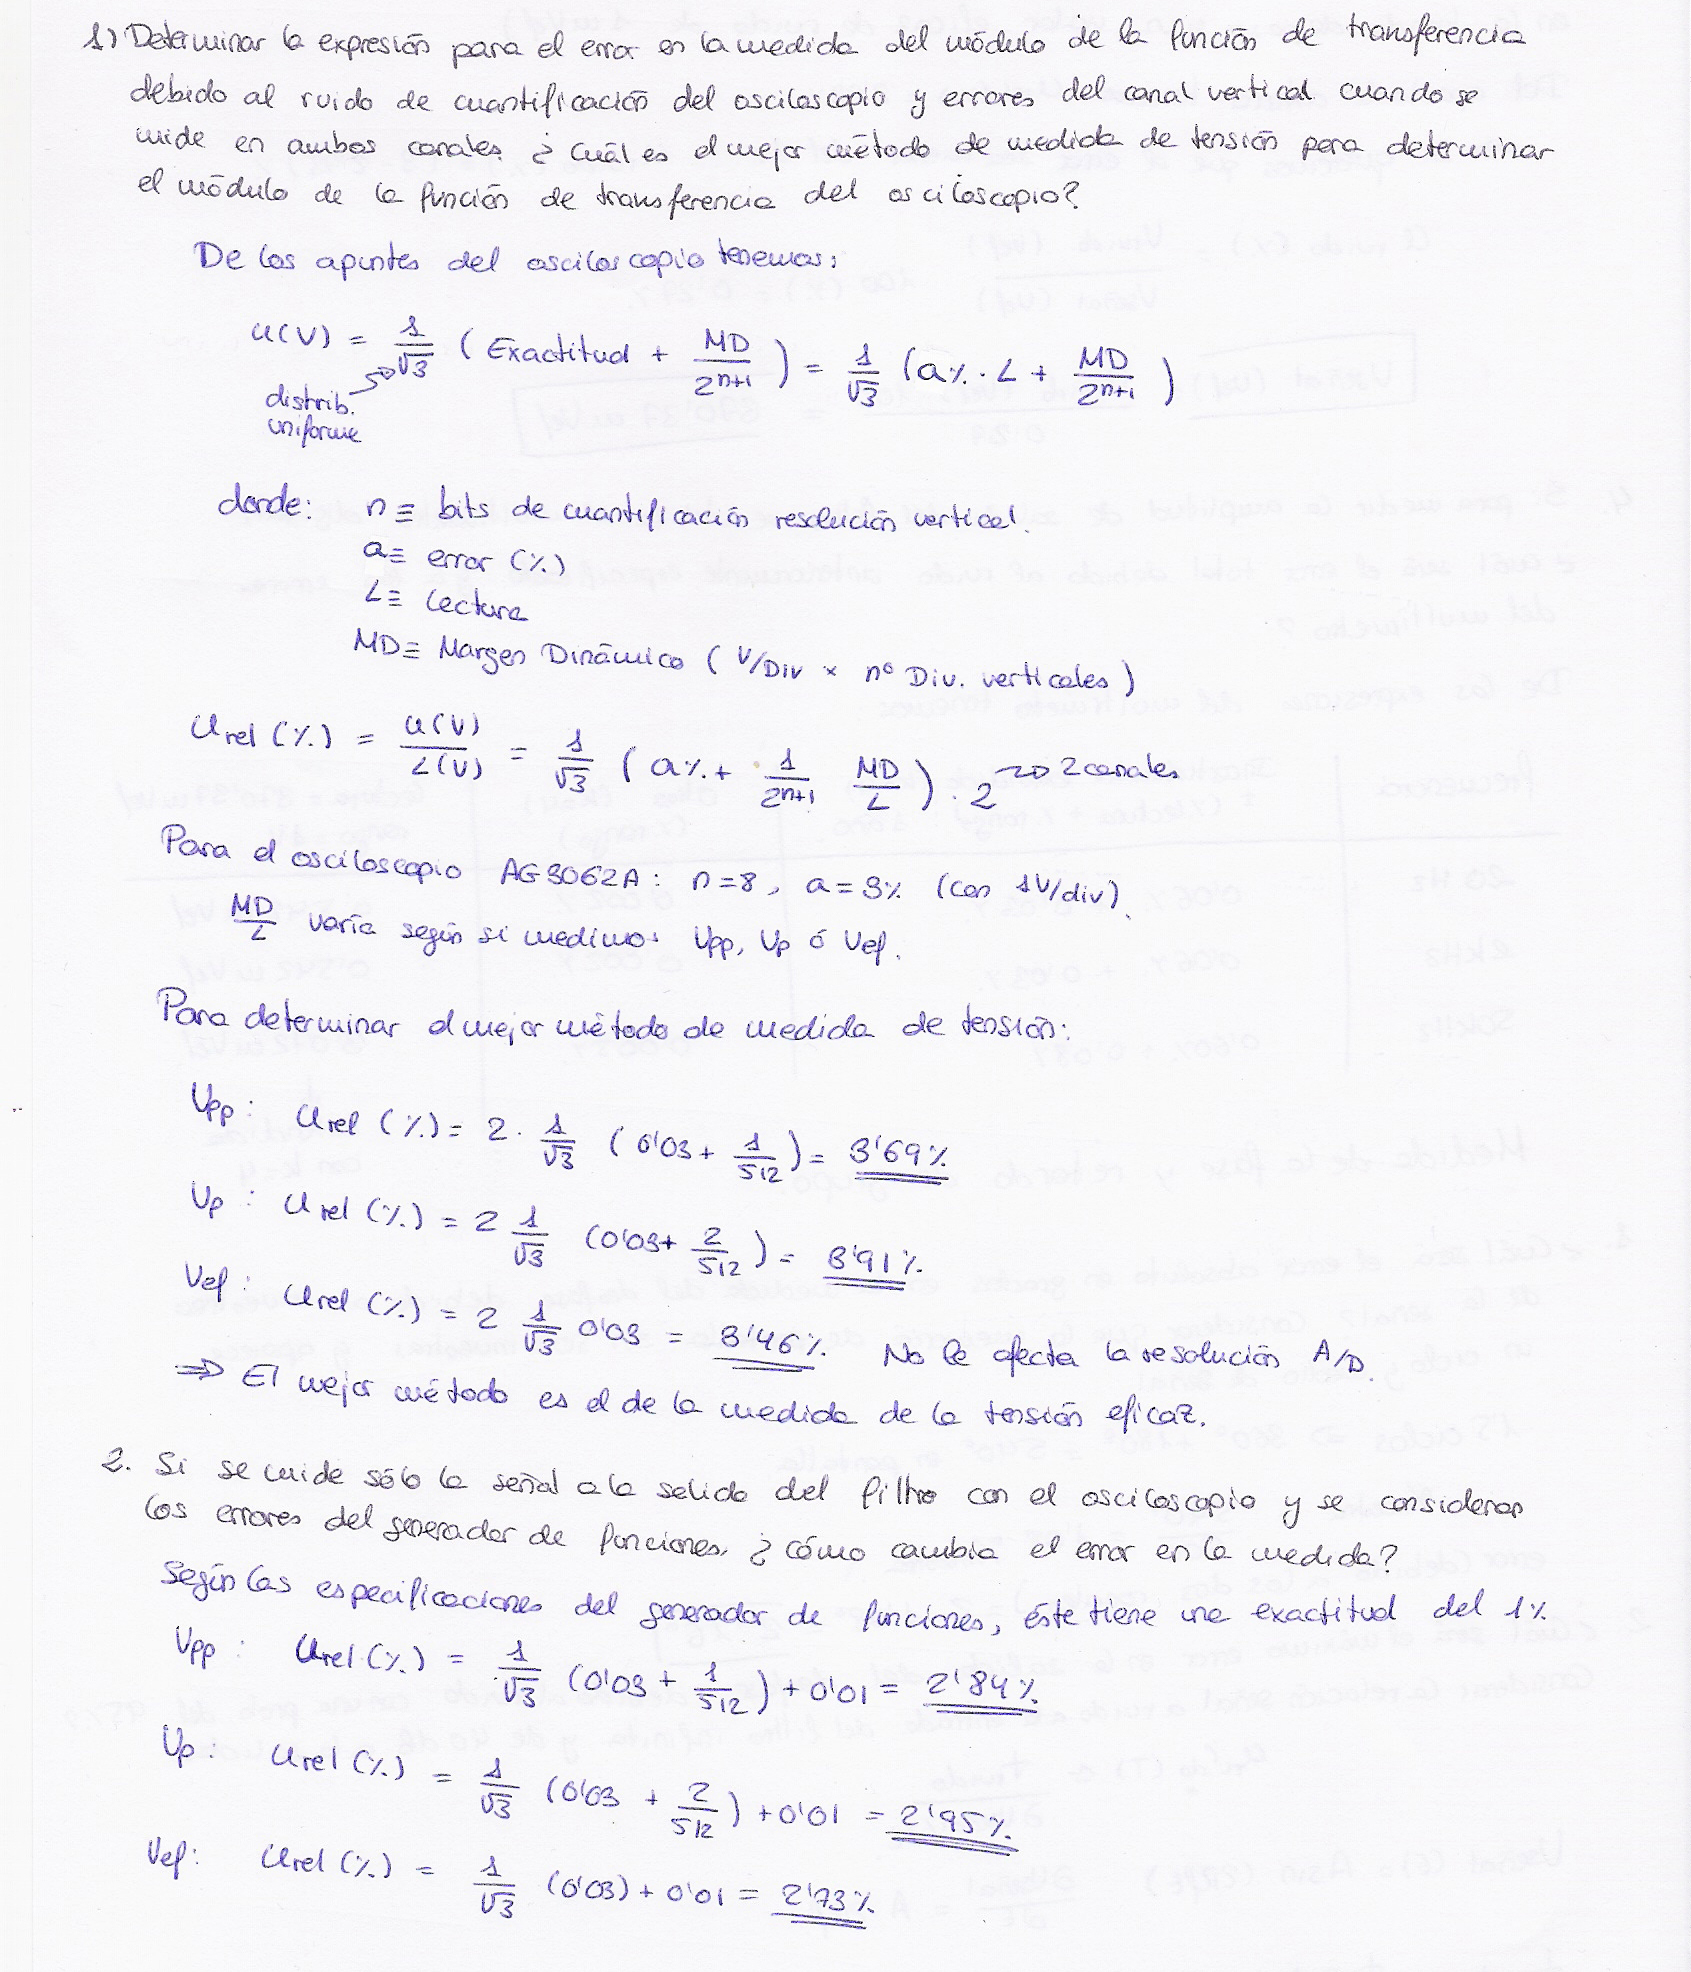 1) Determinar la expresión para el error en la medida del módulo de la función de transferencia
debido al ruido de cuantificación del osciloscopio y errores del canal vertical cuando se
mide en ambos canales. ¿Cuál es el mejor método de medida de tensión para determinar
el módulo de la función de transferencia del osciloscopio?
De los apuntes del osciloscopio tenemos:
u(V) = 1/√3 (Exactitud + MD/2^(n+1)) = 1/√3 (a%·L + MD/2^(n+1))
distrib.
uniforme
donde: n ≡ bits de cuantificación resolución vertical.
a ≡ error (%)
L ≡ Lectura
MD ≡ Margen Dinámico (V/Div × nº Div. verticales)
Urel (%) = u(V)/L(V) = 1/√3 (a% + 1/2^(n+1) MD/L) · 2 → 2 canales
Para el osciloscopio AG3062A: n=8, a=3% (con 1V/div).
MD/L varía según si medimos Vpp, Vp ó Vef.
Para determinar el mejor método de medida de tensión:
Vpp: Urel (%) = 2 · 1/√3 (0'03 + 1/512) = 3'69%
Vp: Urel (%) = 2 1/√3 (0'03 + 2/512) = 3'91%
Vef: Urel (%) = 2 1/√3 0'03 = 3'46%. No le afecta la resolución A/D.
⇒ El mejor método es el de la medida de la tensión eficaz.
2. Si se mide sólo la señal a la salida del filtro con el osciloscopio y se consideran
los errores del generador de funciones, ¿cómo cambia el error en la medida?
Según las especificaciones del generador de funciones, éste tiene una exactitud del 1%
Vpp: Urel (%) = 1/√3 (0'03 + 1/512) + 0'01 = 2'84%
Vp: Urel (%) = 1/√3 (0'03 + 2/512) + 0'01 = 2'95%.
Vef: Urel (%) = 1/√3 (0'03) + 0'01 = 2'73%.